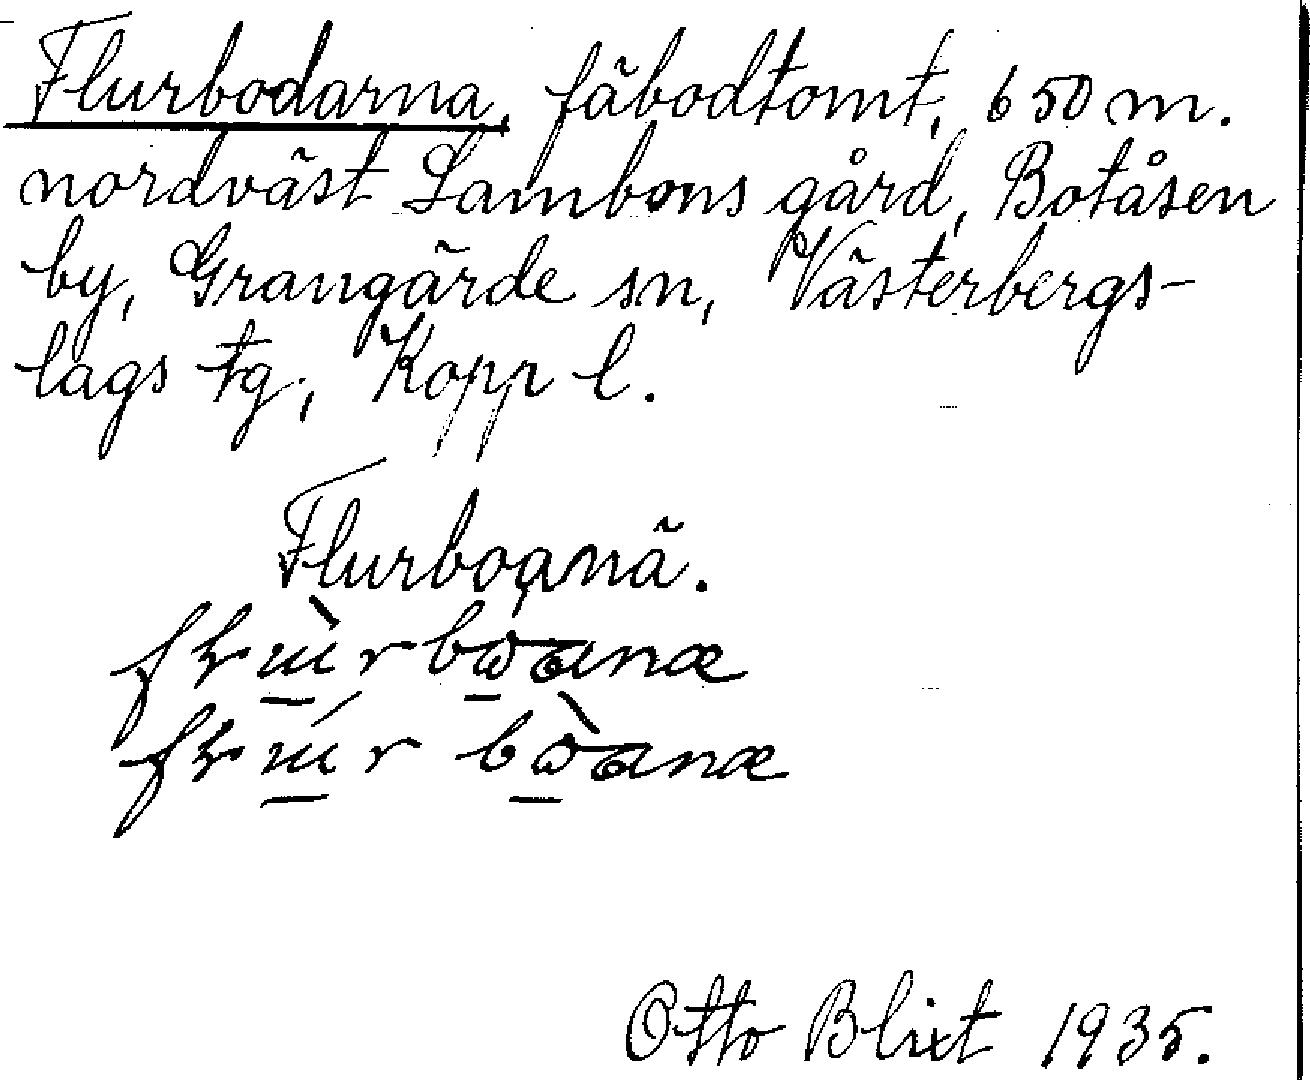 Flurbodarna, fäbodtomt, 650 m.
nordväst Lambons gård, Botåsen
by, Grangärde sn, Västerbergs-
lags tg, Kopp l.
Flurboanä.
Otto Blixt 1935.